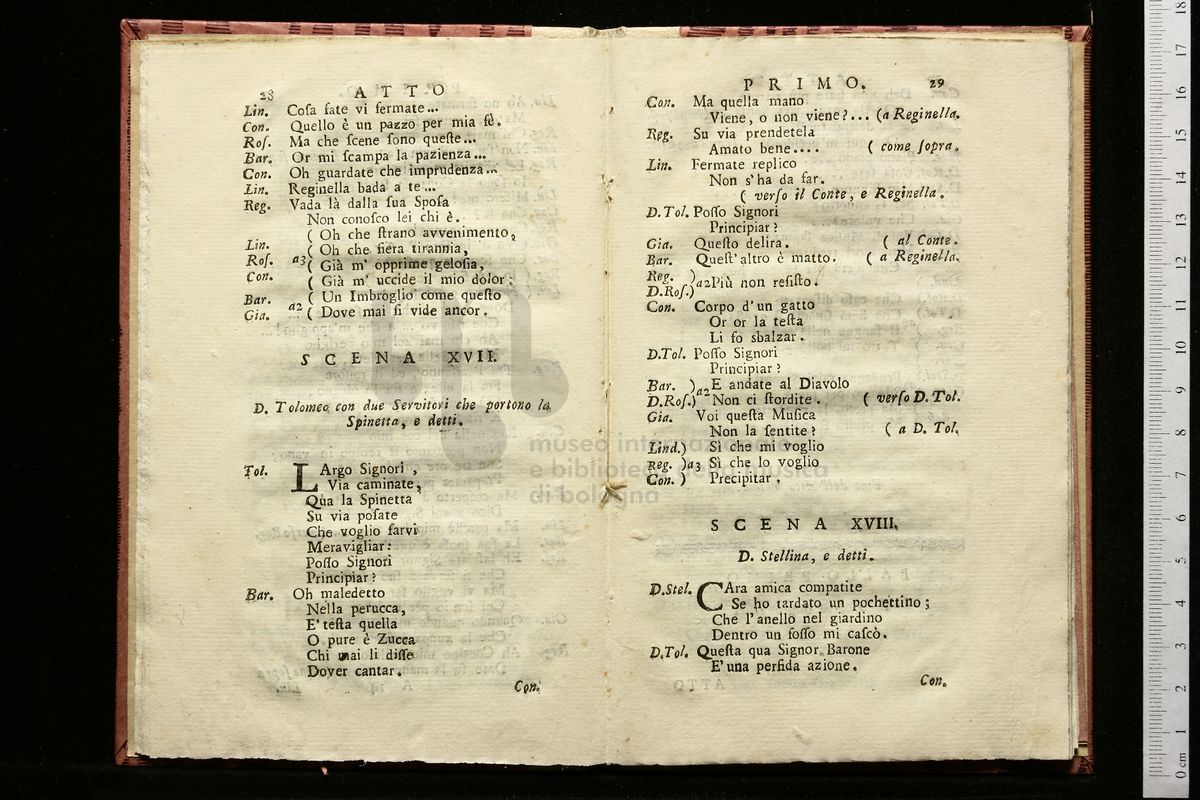 28 ATTO
Lin. Coſa fate vi fermate...
Con. Quello è un pazzo per mia fè.
Roſ. Ma che ſcene ſono queſte...
Bar. Or mi ſcampa la pazienza...
Con. Oh guardate che imprudenza...
Lin. Reginella bada a te...
Reg. Vada là dalla ſua Spoſa
Non conoſco lei chi è.
( Oh che ſtrano avvenimento,
Lin. ( Oh che fiera tirannia,
Roſ. a3 ( Già m' opprime geloſia,
Con. ( Già m' uccide il mio dolor:
Bar. ( Un Imbroglio come queſto
Gia. a2 ( Dove mai ſi vide ancor.
SCENA XVII.
D. Tolomeo con due Servitori che portono la
Spinetta, e detti.
Tol. LArgo Signori,
Via caminate,
Qùa la Spinetta
Su via poſate
Che voglio farvi
Meravigliar:
Poſſo Signori
Principiar?
Bar. Oh maledetto
Nella perucca,
E' teſta quella
O pure è Zucca
Chi mai li diſſe
Dover cantar.
Con.
PRIMO. 29
Con. Ma quella mano
Viene, o non viene?... (a Reginella.
Reg. Su via prendetela
Amato bene.... ( come ſopra.
Lin. Fermate replico
Non s'ha da far.
( verſo il Conte, e Reginella.
D.Tol. Poſſo Signori
Principiar?
Gia. Queſto delira. ( al Conte.
Bar. Queſt'altro è matto. ( a Reginella.
Reg. )
D.Roſ.) a2 Più non reſiſto.
Con. Corpo d'un gatto
Or or la teſta
Li fo sbalzar.
D.Tol. Poſſo Signori
Principiar?
Bar. ) a2 E andate al Diavolo
D.Roſ.) Non ci ſtordite. ( verſo D. Tol.
Gia. Voi queſta Muſica
Non la ſentite? ( a D. Tol.
Lind.) Sì che mi voglio
Reg. )a3 Sì che lo voglio
Con. ) Precipitar.
SCENA XVIII.
D. Stellina, e detti.
D.Stel. CAra amica compatite
Se ho tardato un pochettino;
Che l'anello nel giardino
Dentro un foſſo mi caſcò.
D.Tol. Queſta qua Signor Barone
E'una perfida azione.
Con.
museo internazionale
e biblioteca della musica
di bologna
0 cm 1 2 3 4 5 6 7 8 9 10 11 12 13 14 15 16 17 18